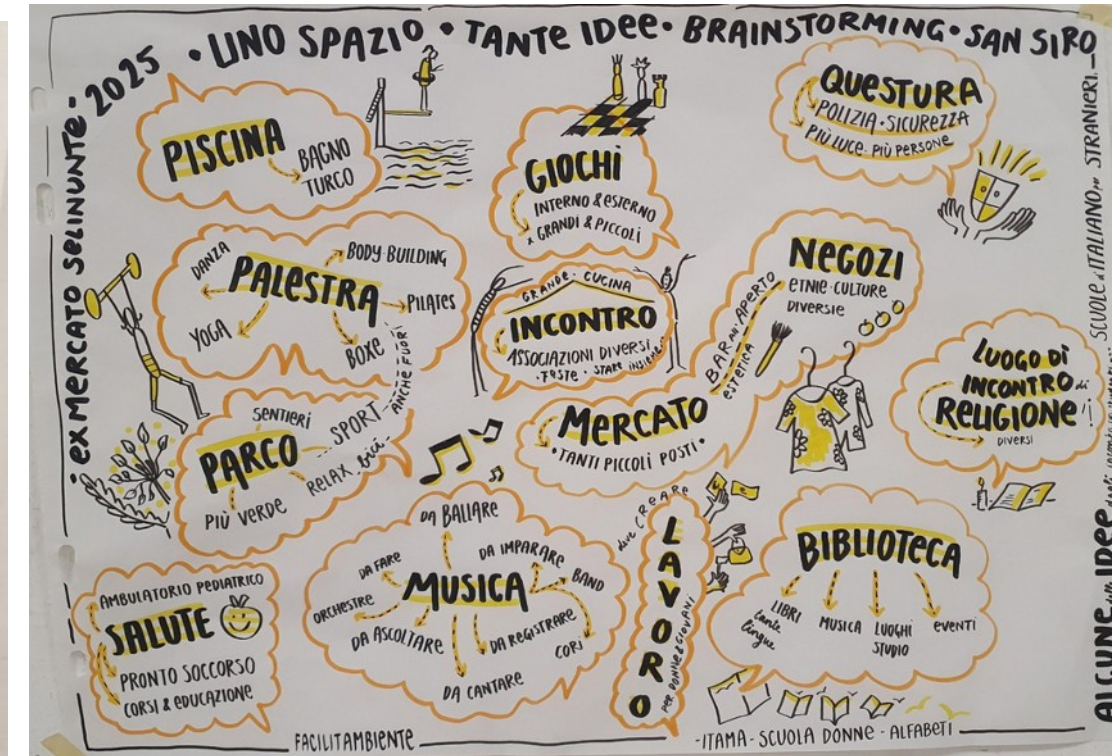 EX MERCATO SELINUNTE - 2025 • UNO SPAZIO • TANTE IDEE • BRAINSTORMING • SAN SIRO
PISCINA
BAGNO
TURCO
GIOCHI
INTERNO & ESTERNO
x GRANDI & PICCOLI
QUESTURA
POLIZIA • SICUREZZA
PIÙ LUCE - PIÙ PERSONE
PALESTRA
DANZA
BODY BUILDING
YOGA
PILATES
BOXE
ANCHE FUORI
GRANDE • CUCINA
INCONTRO
ASSOCIAZIONI DIVERSI
• FESTE • STARE INSIEME
NEGOZI
ETNIE • CULTURE
DIVERSIE
BAR all'APERTO
ESTETICA
MERCATO
• TANTI PICCOLI POSTI •
LUOGO DI
INCONTRO di
RELIGIONE/i
DIVERSI
PARCO
SENTIERI
SPORT
RELAX
bici
PIÙ VERDE
MUSICA
DA BALLARE
DA FARE
DA IMPARARE
BAND
ORCHESTRE
DA ASCOLTARE
DA REGISTRARE
CORI
DA CANTARE
dove CREARE
LAVORO
PER DONNE & GIOVANI
BIBLIOTECA
LIBRI
tante
lingue
MUSICA
LUOGHI
STUDIO
EVENTI
AMBULATORIO PEDIATRICO
SALUTE
PRONTO SOCCORSO
CORSI & EDUCAZIONE
FACILITAMBIENTE
- ITAMA - SCUOLA DONNE - ALFABETI
ALCUNE IDEE
SCUOLE d'ITALIANO per STRANIERI